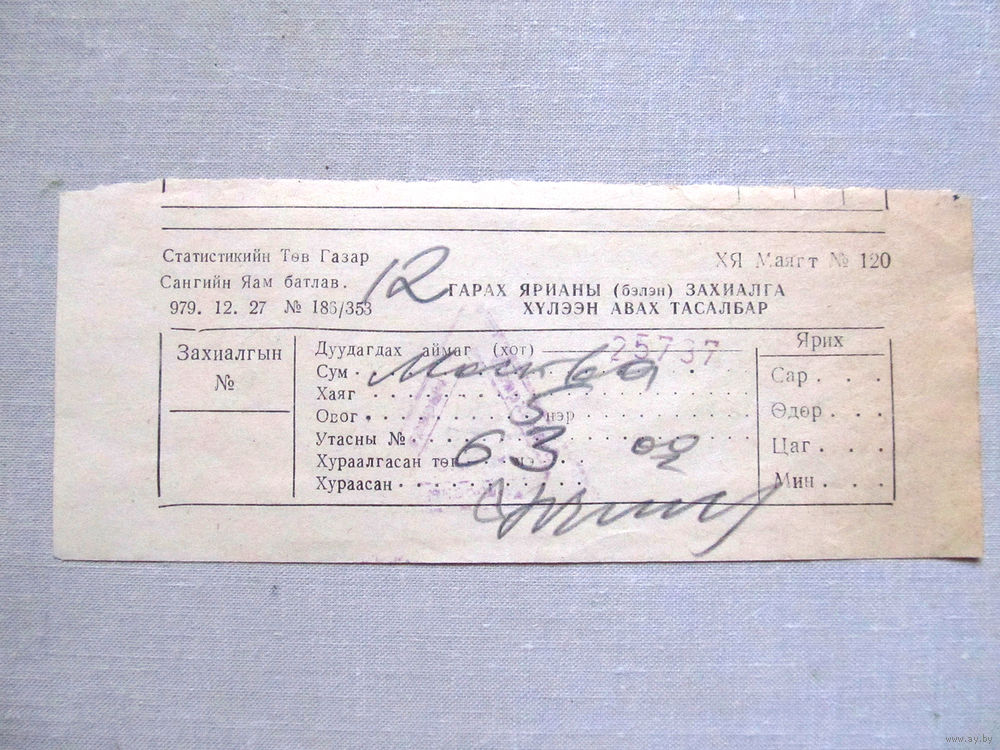 Статистикийн Төв Газар
Сангийн Яам батлав.
979. 12. 27 № 186/353
12
ХЯ Маягт № 120
ГАРАХ ЯРИАНЫ (бэлэн) ЗАХИАЛГА
ХҮЛЭЭН АВАХ ТАСАЛБАР
Захиалгын
№
Дуудагдах аймаг (хот) 25737
Сум Москва
Хаяг
Овог нэр
5
Утасны №
Хураалгасан төг 63
Хураасан
Ярих
Сар
Өдөр
Цаг
Мин
www.ay.by